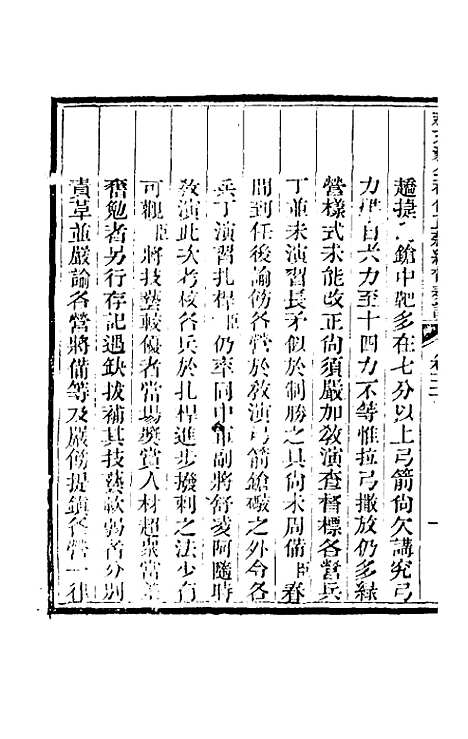 趫捷 鎗中靶多在七分以上弓箭尙欠講究弓
力 自六力至十四力不等惟拉弓撒放仍多綠
營樣式未能改正尙須嚴加敎演查督標各營兵
丁並未演習長矛似於制勝之具尙未周備臣春
間到任後諭飭各營於敎演弓箭鎗礮之外令各
兵丁演習扎桿臣仍率同中軍副將舒凌阿隨時
敎演此次考核各兵於扎桿進步撥刺之法少有
可觀臣將技藝較優者當場獎賞人材超衆當差
奮勉者另行存記遇缺拔補其技藝軟弱者分別
責革並嚴諭各營將備等及嚴飭提鎮各營一律